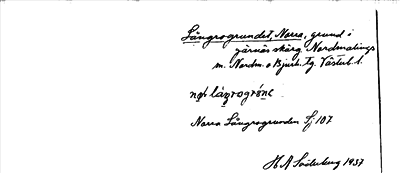 Långrogrundet, Norra, grund i
Järnäs skärg. Nordmalings
sn. Nordm. o Bjurh. tg. Västerb. l.
Norra Långrogrunden Sj 107
H A Söderberg 1937